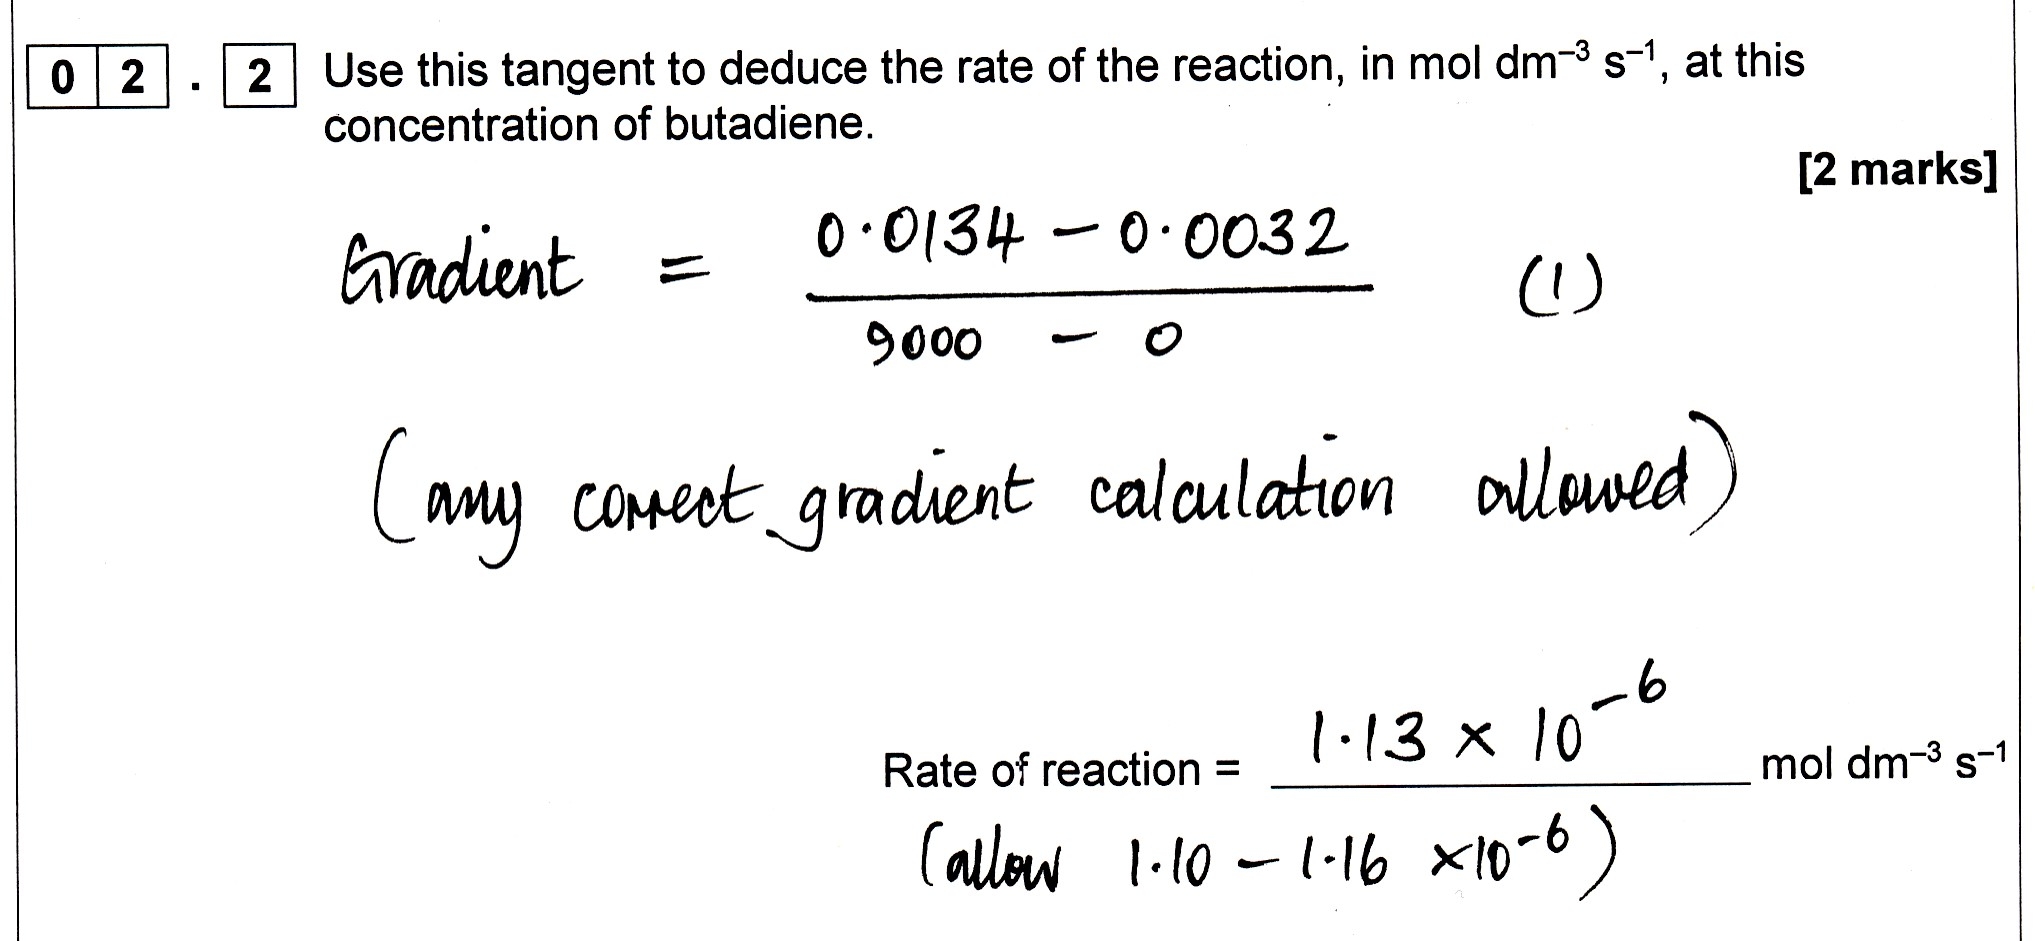 02.2 Use this tangent to deduce the rate of the reaction, in mol dm⁻³ s⁻¹, at this
concentration of butadiene.
[2 marks]
Gradient = 0.0134 – 0.0032 (1)
9000 – 0
(any correct gradient calculation allowed)
Rate of reaction = 1.13 × 10⁻⁶ mol dm⁻³ s⁻¹
(allow 1.10 – 1.16 ×10⁻⁶)